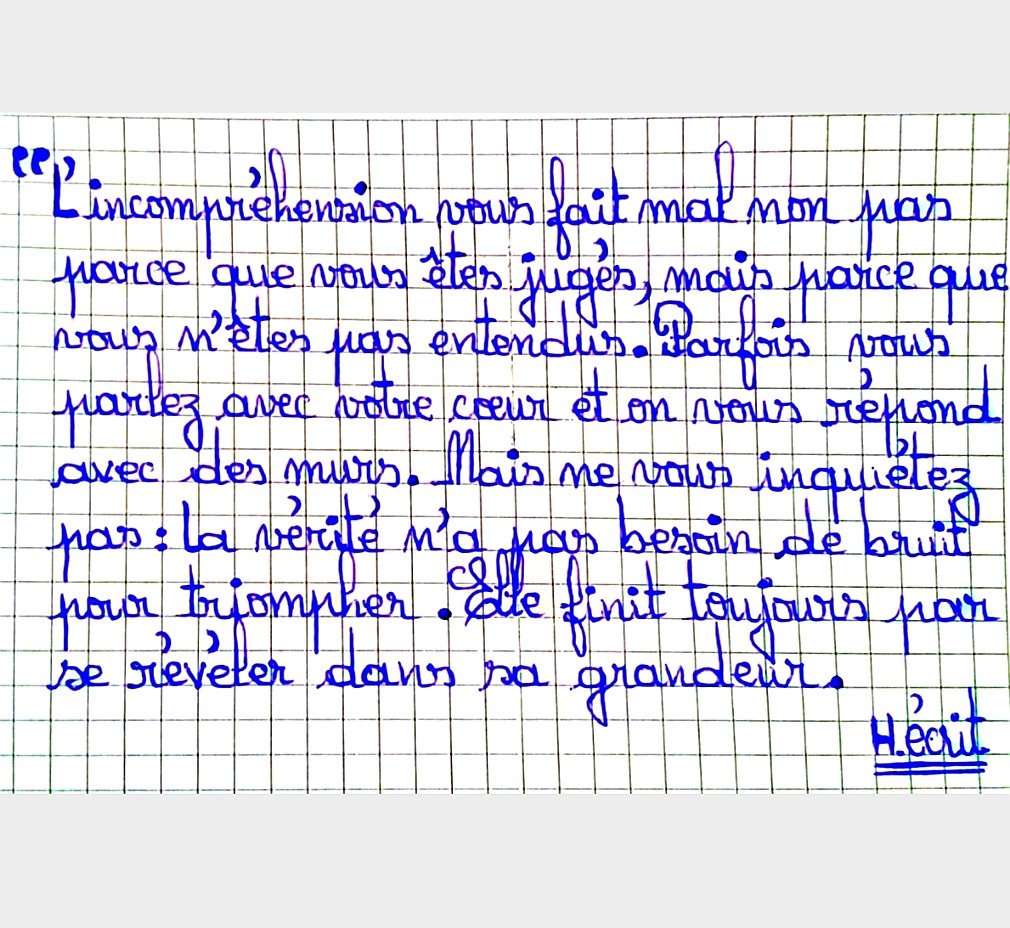 “L'incompréhension vous fait mal non pas
parce que vous êtes jugés, mais parce que
vous n'êtes pas entendus. Parfois vous
parlez avec votre cœur et on vous répond
avec des murs. Mais ne vous inquiétez
pas : la vérité n'a pas besoin de bruit
pour triompher. Elle finit toujours par
se révéler dans sa grandeur.
H.écrit